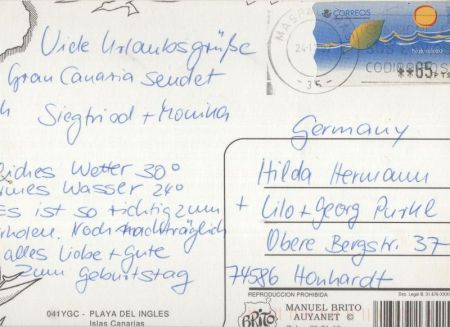 Viele Urlaubsgrüße
Gran Canaria sendet
Siegfried + Monika
Wetter 30°
Wasser 24°
Es ist so richtig zum
Noch nachträglich
alles Liebe + Gute
zum Geburtstag
041YGC - PLAYA DEL INGLES
Islas Canarias
CORREOS
**65 PTS
MASPA
- 35 -
Germany
Hilda Hermann
+ Lilo + Georg
Obere Bergstr. 37
74586 Honhardt
REPRODUCCION PROHIBIDA
BRITO
MANUEL BRITO
AUYANET ©